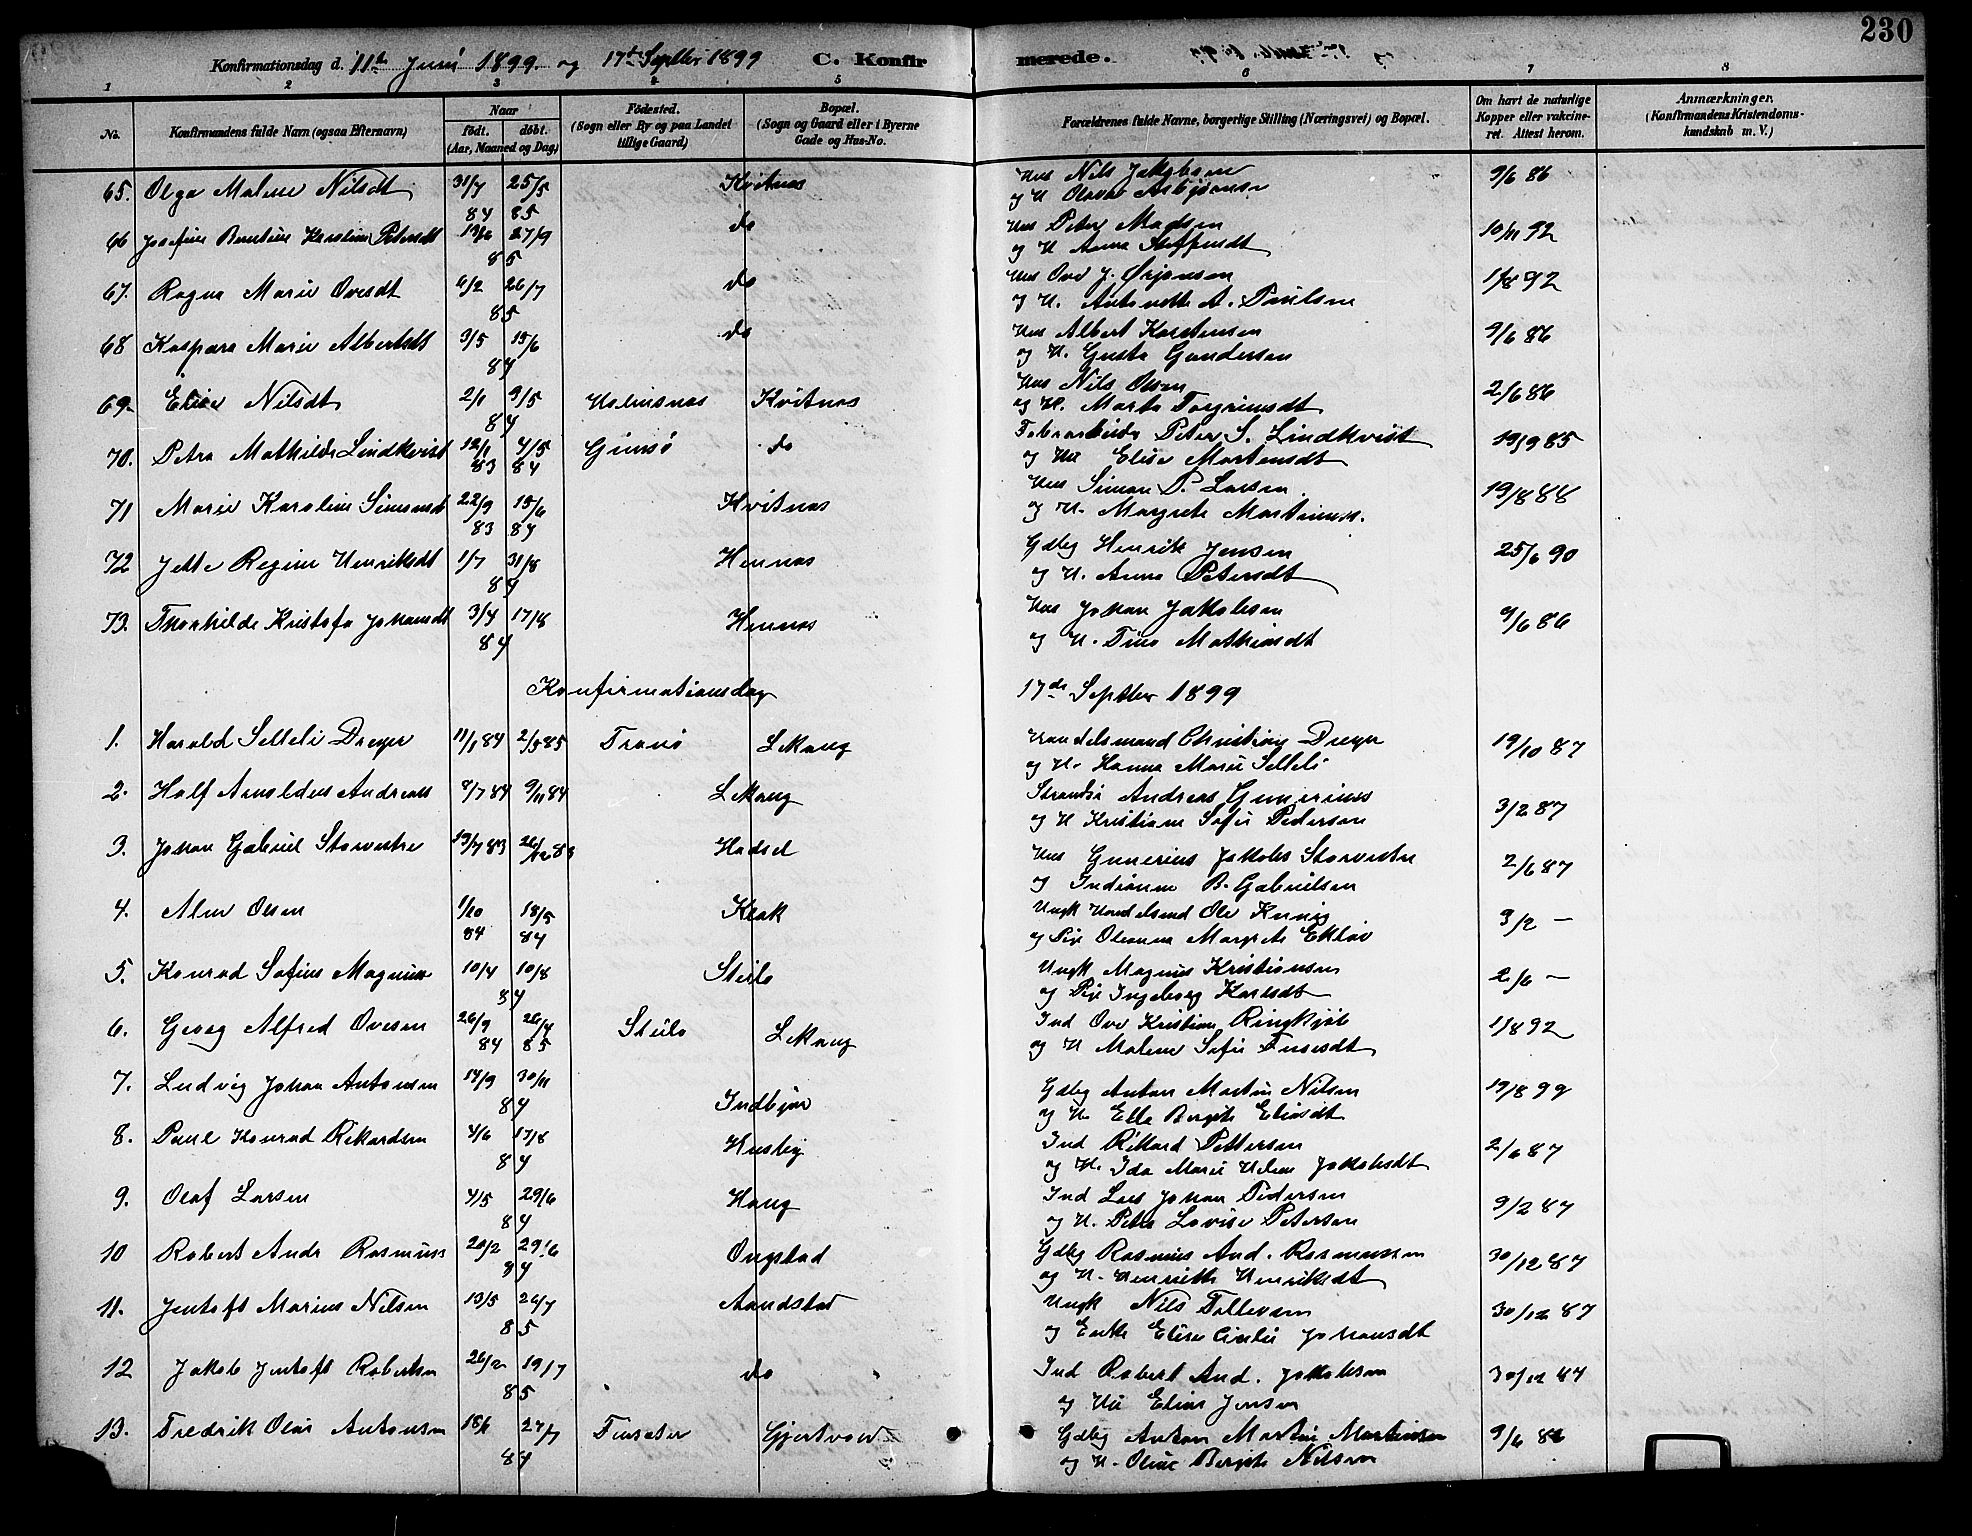 230
Konfirmationsdag d. 11te Juni 1899 og 17de Septbr 1899 C. Konfirmerede.
1 2 3 4 5 6 7 8
No. Konfirmandens fulde Navn (ogsaa Efternavn) Naar født. døbt. (Aar, Maaned og Dag) Fødested. (Sogn eller By og paa Landet tillige Gaard) Bopæl. (Sogn og Gaard eller i Byerne Gade og Hus-No. Forældrenes fulde Navne, borgerlige Stilling (Næringsvei) og Bopæl. Om havt de naturlige Kopper eller vakcineret. Attest herom. Anmærkninger. (Konfirmandens Kristendomskundskab m. V.)
65. Olga Malene Nilsdt 31/7 84 25/5 85 Kvitnes Hus Nils Jakobsen 9/6 86
og H Olava Asbjørnsn
66 Josefine Berntine Karoline Petersdt 13/6 27/9 85 do Hus Peter Madsen 10/11 92
og H Anna Steffensdt
67. Ragna Marie Ovesdt 6/2 26/7 85 do Hus Ove J. Ørjansen 1/8 92
og H. Antonette A. Paulsen
68 Kaspara Marie Albertsdt 3/5 15/6 84 do Hus Albert Karstensen 9/6 86
og H. Gusta Gundersen
69. Elise Nilsdt 2/1 9/5 84 Holmsnes Kvitnes Hus Nils Olsen 2/6 86
og H. Marta Torgrimsdt
70. Petra Mathilde Lindkvist 12/1 83 4/5 84 Gimsø do Fabrarbeider Peter S. Lindkvist 19/9 85
og Hu Elise Mortensdt
71 Marie Karoline Simonsdt 22/9 83 15/6 84 Kvitnes Hus Simon P. Larsen 19/8 88
og H. Margrete Martinusd.
72 Jette Regine Henriksdt 1/7 31/8 84 Hennes Gdbg Henrik Jensen 25/6 90
og H. Anna Petersdt
73. Thorhilde Kristofa Johansdt 3/4 17/8 84 Hennes Hus Johan Jakobsen 9/6 86
og H. Tina Mathiasdt
Konfirmationsdag 17de Septbr 1899
1. Harald Selleli Dreyer 11/1 84 2/5 85 Tranø Lekang Handelsmand Christian Dreyer 19/10 87
og H. Hanna Marie Selleli
2. Half Arnoldus Andreass 7/7 84 9/11 84 Lekang Strandsi Andreas Gunerius 3/2 87
og H Kristiane Sofie Pedersen
3. Johan Gabriel Storvestre 19/7 83 26/12 83 Hadsel Hus Gunerius Jakobs Storvestre 2/6 87
og Indianne B. Gabrielsen
4. Alm Olsen 1/10 84 18/5 84 Krak Ungk Handelsmd Ole Kunig 3/2 —
og Pige Oleanna Margrete Ekløv
5. Konrad Sofius Magnuss 10/4 10/8 84 Steilo Ungk Magnus Kristiansen 2/6 —
og Pige Ingeborg Karlsdt
6. Georg Alfred Ovesen 26/9 84 26/4 85 Steilo Lekang Ind Ove Kristian Ringkjøb 1/8 92
og H Malene Sofie Turesdt
7. Ludvig Johan Antonsen 14/9 30/11 84 Indbjør Gdbg Anton Martin Nilsen 19/8 99
og H. Ella Bergite Eliasdt
8. Paul Konrad Rikardsen 4/6 17/8 84 Husby Ind Rikard Pettersen 2/6 87
og H. Ida Marie Helene Jakobsdt
9. Olaf Larsen 4/5 29/6 84 Haug Ind Lars Johan Pedersen 9/2 87
og H. Petra Lovise Petersen
10 Robert Andr Rasmuss 20/2 29/6 84 Ongstad Gdbg Rasmus And. Rasmussen 30/12 87
og H. Henriette Henriksdt
11. Jentoft Marius Nilsen 13/5 26/7 85 Aandstad Ungk Nils Tollevsen 30/12 87
og Enke Elise Cecilie Johansdt
12 Jakob Jentoft Robertsn 26/2 19/7 85 do Ind Robert And. Jakobsen 30/12 87
og Hu Elise Jensen
13. Fredrik Olai Antonsen 18/1 27/7 84 Finsæter Gjertvold Gdbg Anton Martin Martinsen 9/6 86
og H. Oline Bergite Nilsen